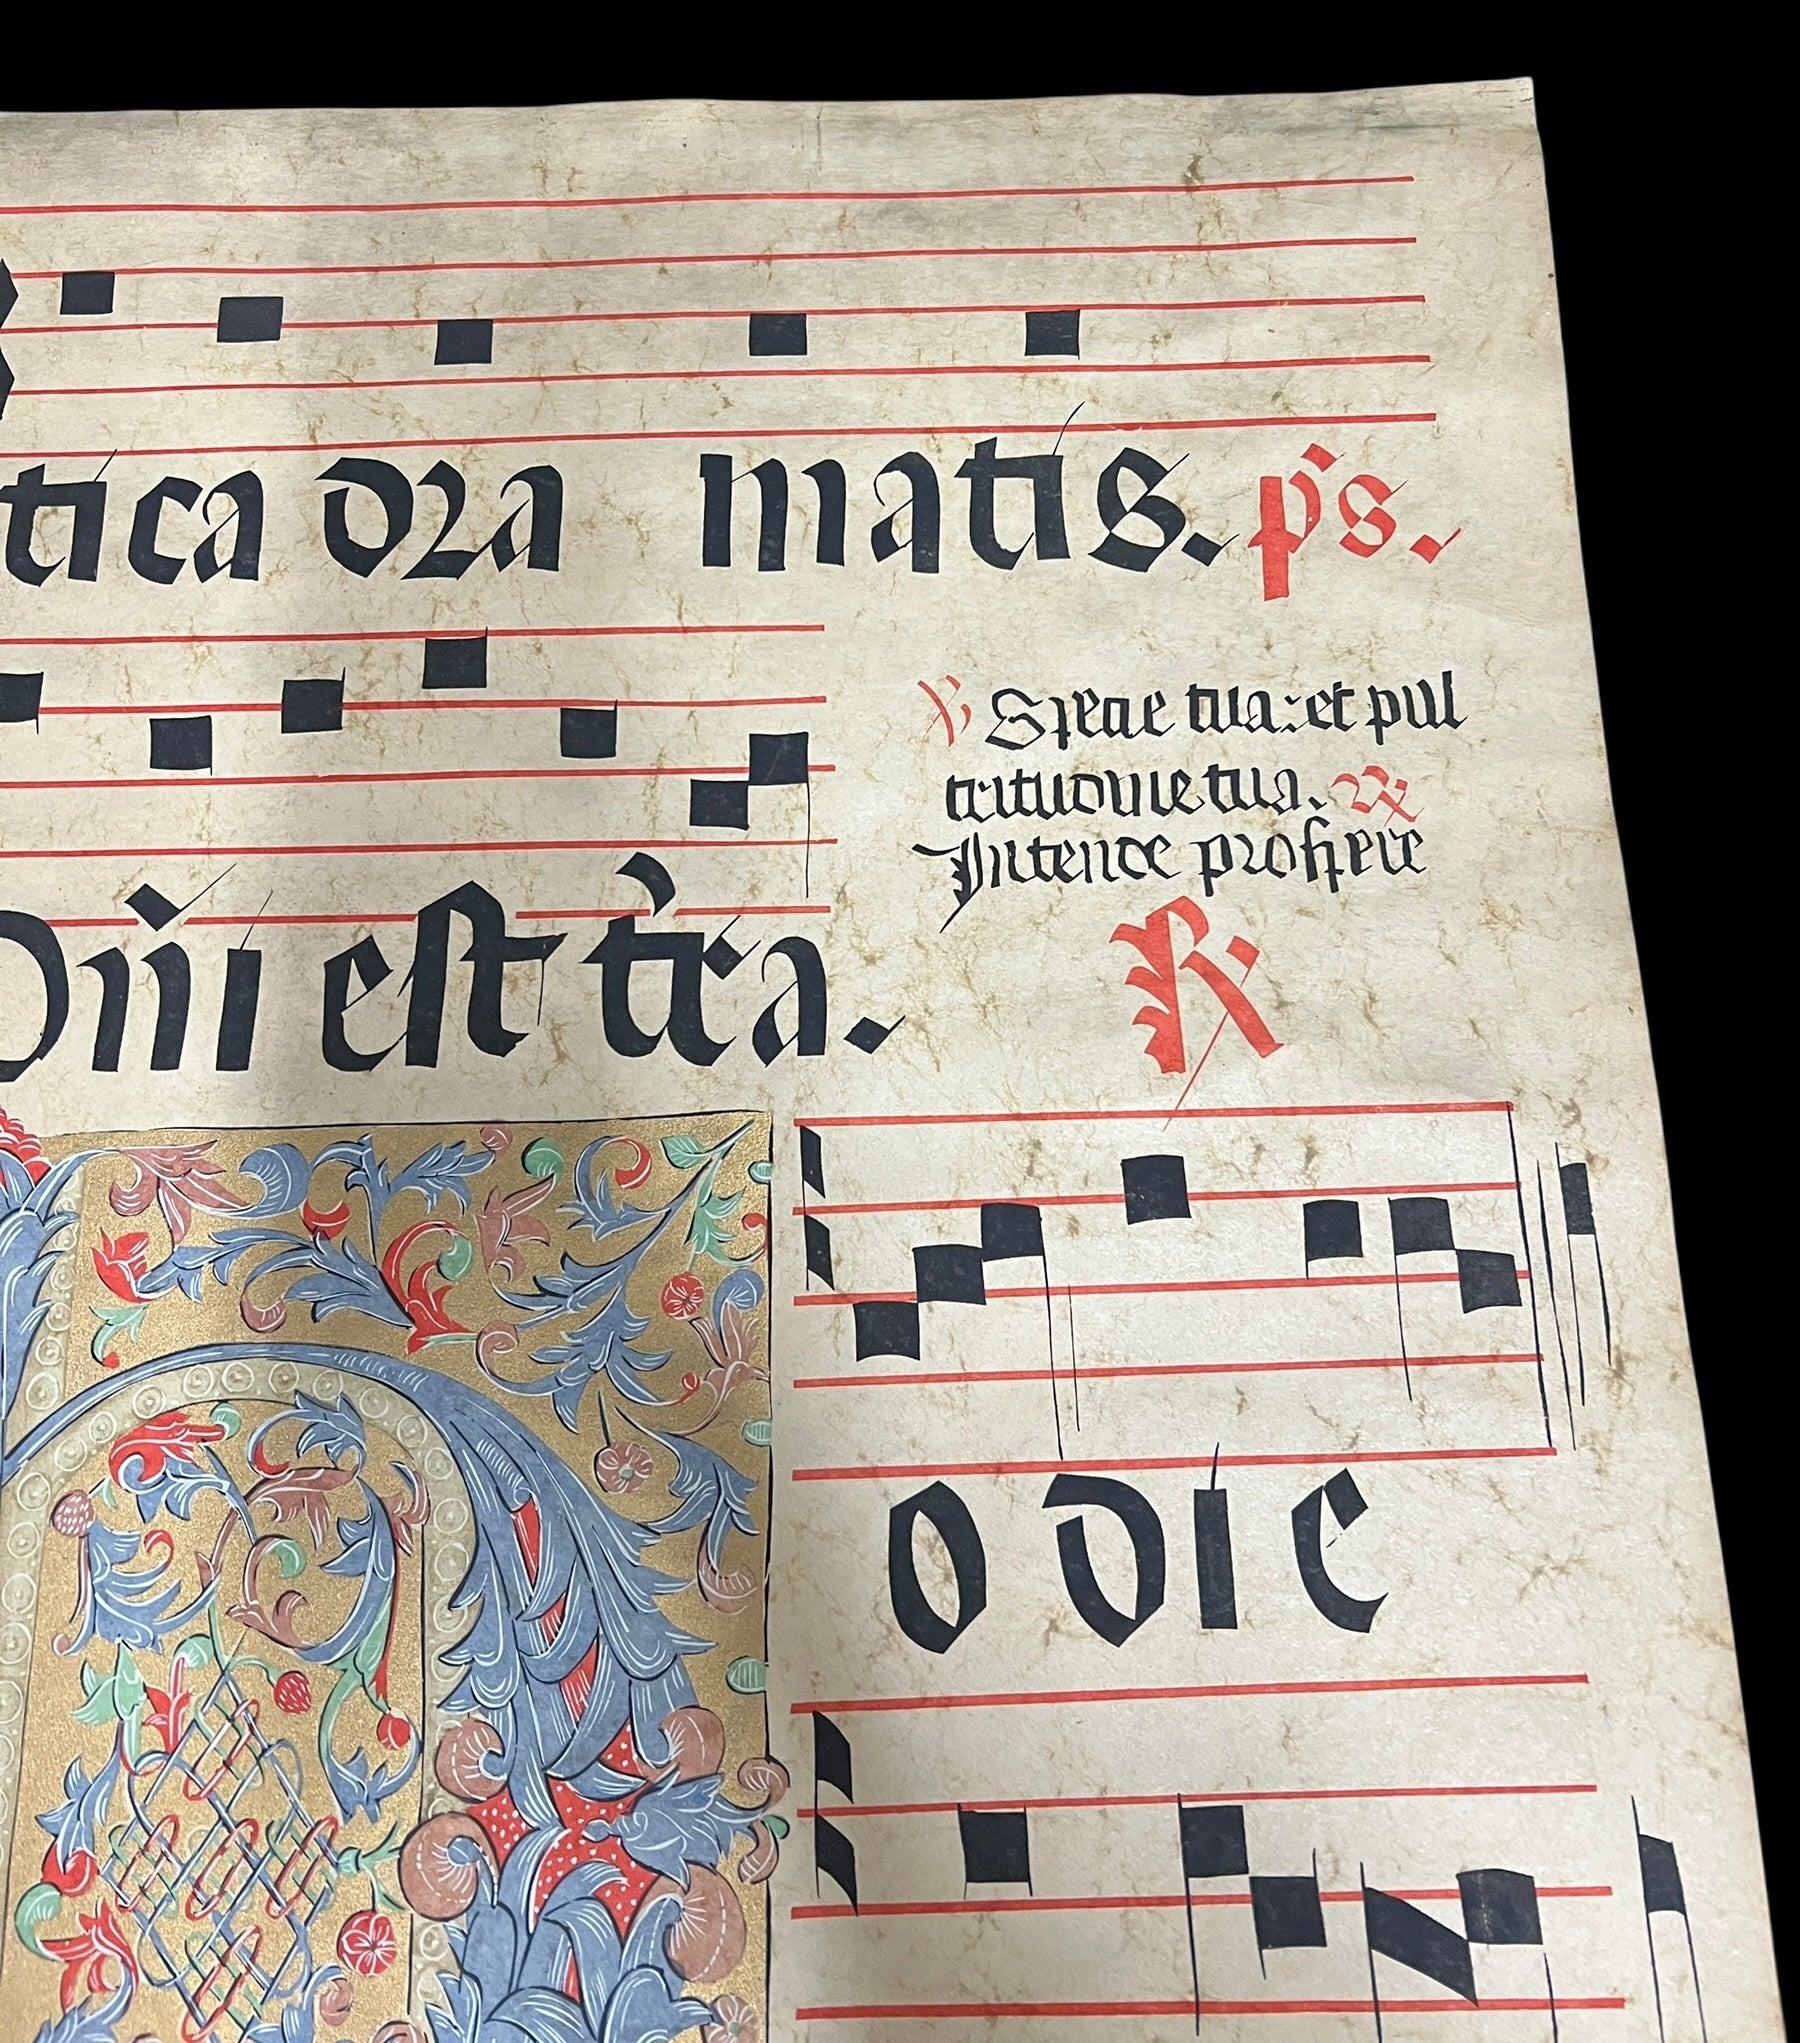 tica ora matis. ps.
℣ Specie tua: et pul
critudine tua. ℟
Intende prospere
Dñi est t̃ra.
℟
odie